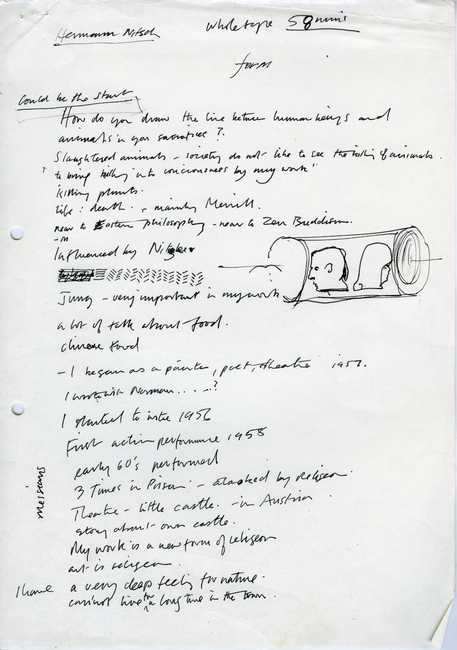 Hermann Nitsch
whole tape 58 mins
form
Could be the start
How do you draw the line between human beings and
animals in your sacrifices?
Slaughtered animals - society do not like to see the killing of animals.
? to bring killing into consciousness by my work"
killing plants.
life: death. - mainly
near to Eastern philosophy - near to Zen Buddism.
Influenced by
Jung - very important in my work
a lot of talk about food.
chinese food
- I began as a painter, poet, theatre 1957.
I work with Norman.....?
I started to write 1956
First action performance 1958
early 60's performed
3 Times in Prison - attacked by religion
Theatre - little castle - in Austria
story about own castle.
My work is a new form of religion
art is religion
I have a very deep feeling for nature.
cannot live for a long time in the town.